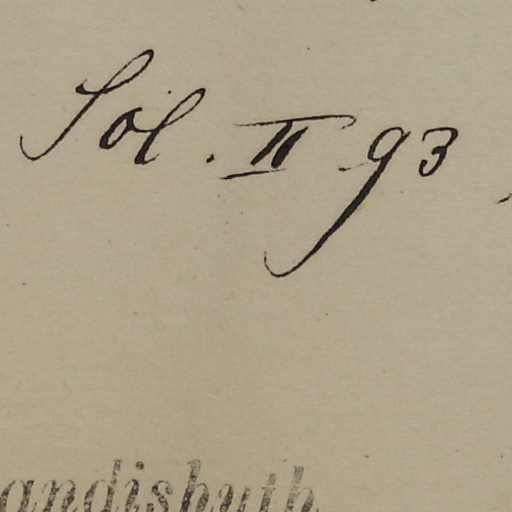 Sol. II 93
andishuth